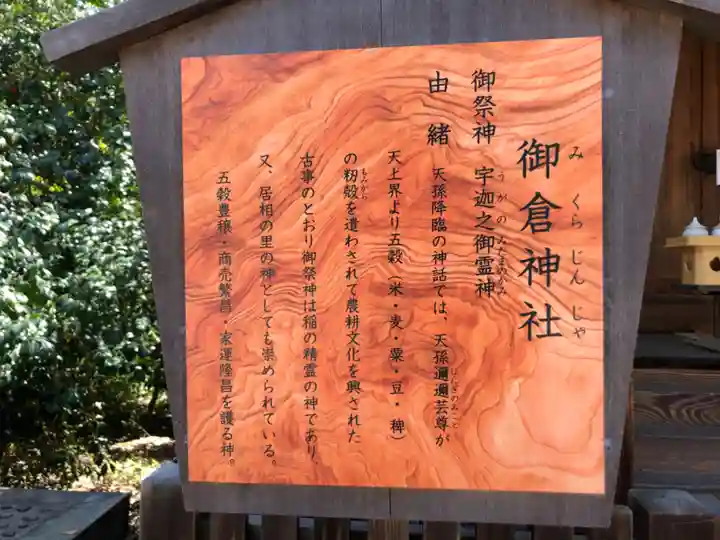 御倉神社
みくらじんじゃ
御祭神 宇迦之御霊神
うがのみたまのかみ
由緒 天孫降臨の神話では、天孫邇邇芸尊が
ににぎのみこと
天上界より五穀(米・麦・粟・豆・稗)
の籾殻を遣わされて農耕文化を興された
もみがら
古事のとおり御祭神は稲の精霊の神であり、
又、居相の里の神としても崇められている。
五穀豊穣・商売繁昌・家運隆昌を護る神。